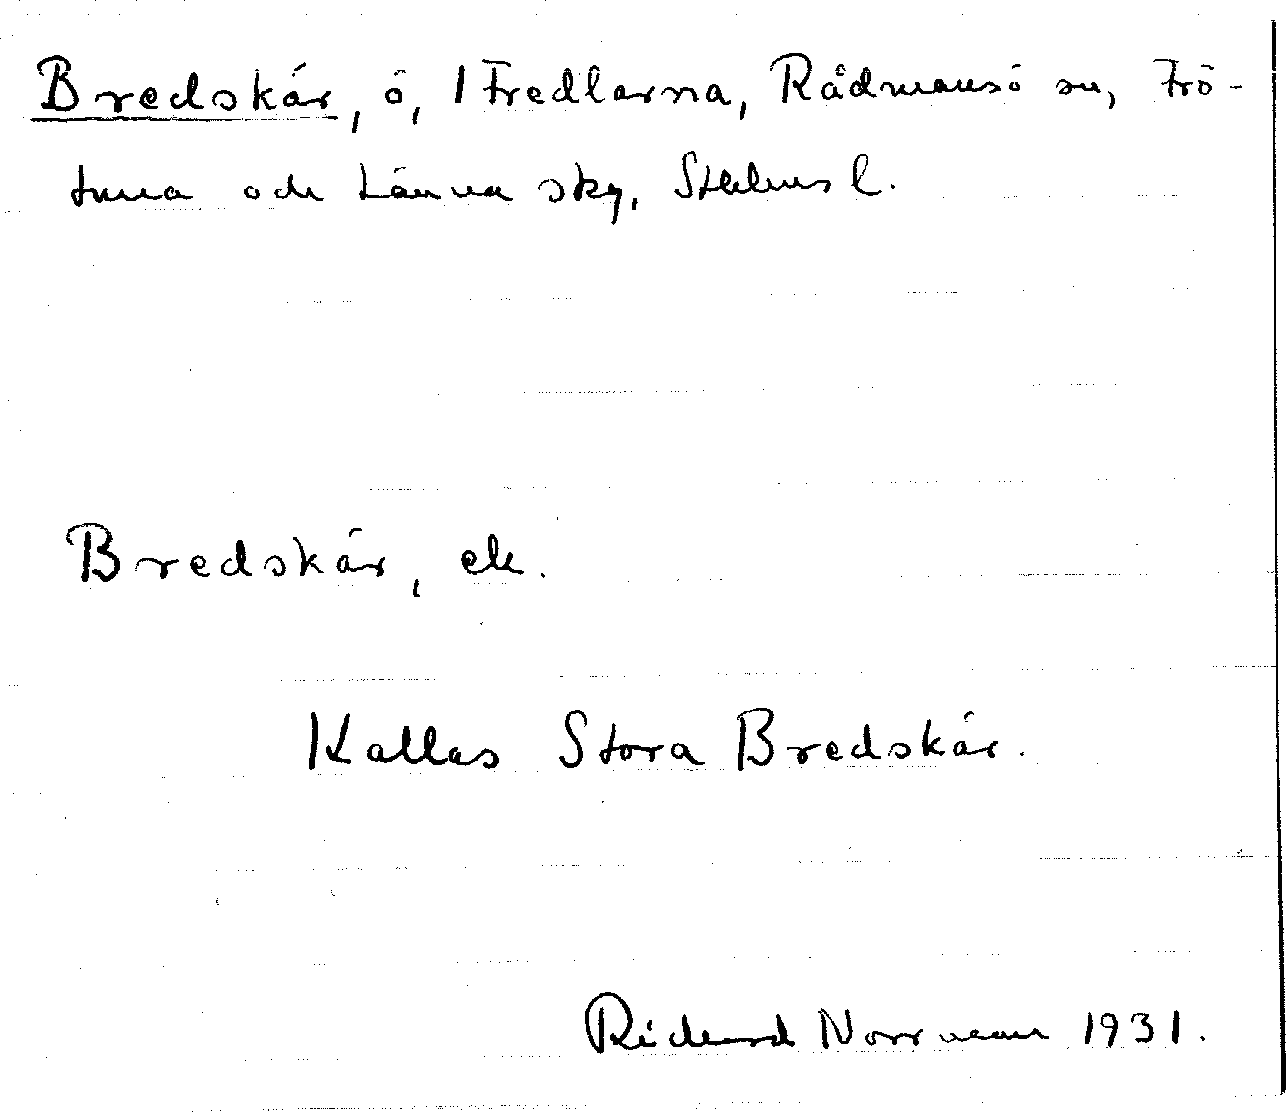 Bredskär, ö, i Fredlarna, Rådmansö sn, Frö-
tuna och Länna sky, Sthlms l.
Bredskär, ek.
Kallas Stora Bredskär.
Rickard Norrman 1931.